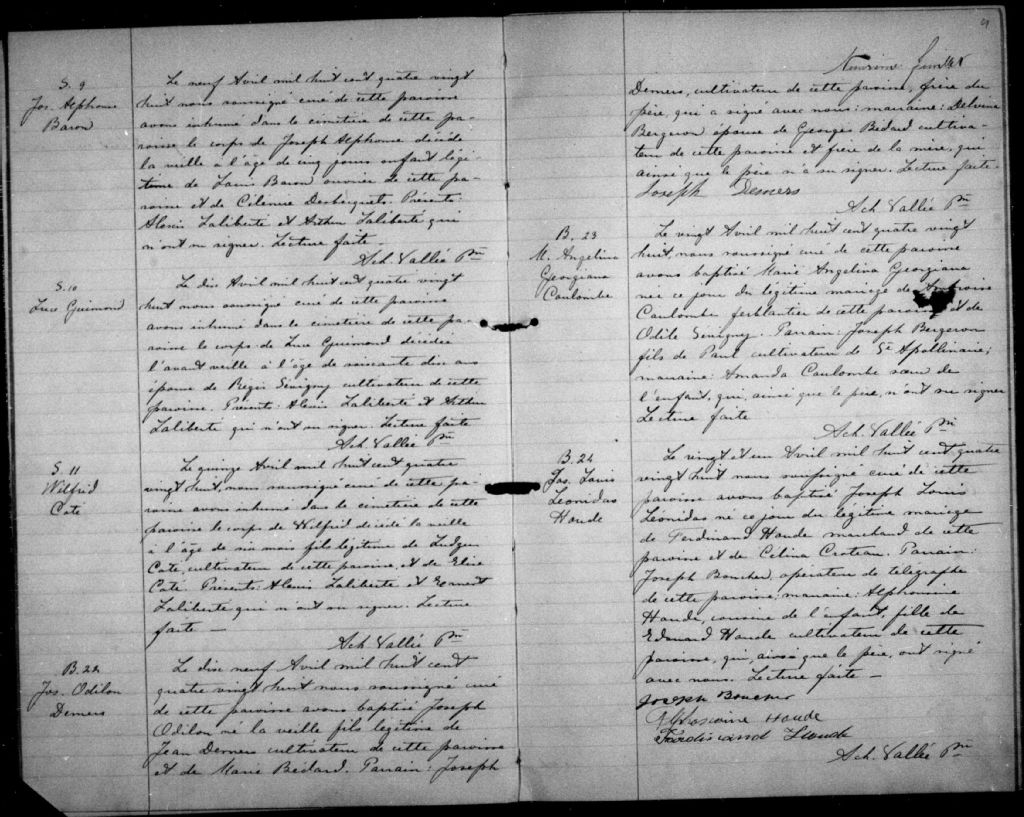 S. 9
Jos. Alphonse
Baron
Le neuf Avril mil huit cent quatre vingt
huit nous soussigné curé de cette paroisse
avons inhumé dans le cimetière de cette pa-
roisse le corps de Joseph Alphonse décédé
la veille à l'âge de cinq jours enfant légi-
time de Louis Baron ouvrier de cette pa-
roisse et de Célanire Desherquets. Présents:
Alexis Laliberté et Arthur Laliberté qui
n'ont su signer. Lecture faite.
Ach. Vallée Ptre
S. 10
Luce Guimond
Le dix Avril mil huit cent quatre vingt
huit nous soussigné curé de cette paroisse
avons inhumé dans le cimetière de cette pa-
roisse le corps de Luce Guimond décédée
l'avant veille à l'âge de soixante dix ans
épouse de Régis Sévigny cultivateur de cette
paroisse. Présents: Alexis Laliberté et Arthur
Laliberté qui n'ont su signer. Lecture faite
Ach. Vallée Ptre
S. 11
Wilfrid
Coté
Le quinze Avril mil huit cent quatre
vingt huit, nous soussigné curé de cette pa-
roisse avons inhumé dans le cimetière de cette
paroisse le corps de Wilfrid décédé la veille
à l'âge de six mois fils légitime de Ludger
Coté, cultivateur de cette paroisse, et de Elise
Coté. Présents: Alexis Laliberté et Ernest
Laliberté qui n'ont su signer. Lecture
faite —
Ach. Vallée Ptre
B. 22
Jos. Odilon
Demers
Le dix neuf Avril mil huit cent
quatre vingt huit nous soussigné curé
de cette paroisse avons baptisé Joseph
Odilon né la veille fils légitime de
Jean Demers cultivateur de cette paroisse
et de Marie Bédard. Parrain: Joseph
9
Demers, cultivateur de cette paroisse, frère du
père, qui a signé avec nous; marraine: Delvina
Bergeron épouse de Georges Bédard cultiva-
teur de cette paroisse et frère de la mère, qui
ainsi que le père n'a su signer. Lecture faite.
Joseph Demers
Ach. Vallée Ptre
B. 23
M. Angelina
Georgiana
Coulombe
Le vingt Avril mil huit cent quatre vingt
huit, nous soussigné curé de cette paroisse
avons baptisé Marie Angelina Georgiana
née ce jour du légitime mariage de Ambroise
Coulombe ferblantier de cette paroisse et de
Odile Sévigny. Parrain: Joseph Bergeron
fils de Paul cultivateur de St Apollinaire;
marraine: Amanda Coulombe sœur de
l'enfant, qui, ainsi que le père, n'ont su signer
Lecture faite
Ach. Vallée Ptre
B. 24
Jos. Louis
Léonidas
Houde
Le vingt et un Avril mil huit cent quatre
vingt huit nous soussigné curé de cette
paroisse avons baptisé Joseph Louis
Léonidas né ce jour du légitime mariage
de Ferdinand Houde marchand de cette
paroisse et de Célina Croteau. Parrain:
Joseph Boucher, opérateur de télégraphe
de cette paroisse; marraine: Alphonsine
Houde, cousine de l'enfant, fille de
Edouard Houde cultivateur de cette
paroisse, qui, ainsi que le père, ont signé
avec nous. Lecture faite —
Joseph Boucher
Alphonsine Houde
Ferdinand Houde
Ach. Vallée Ptre